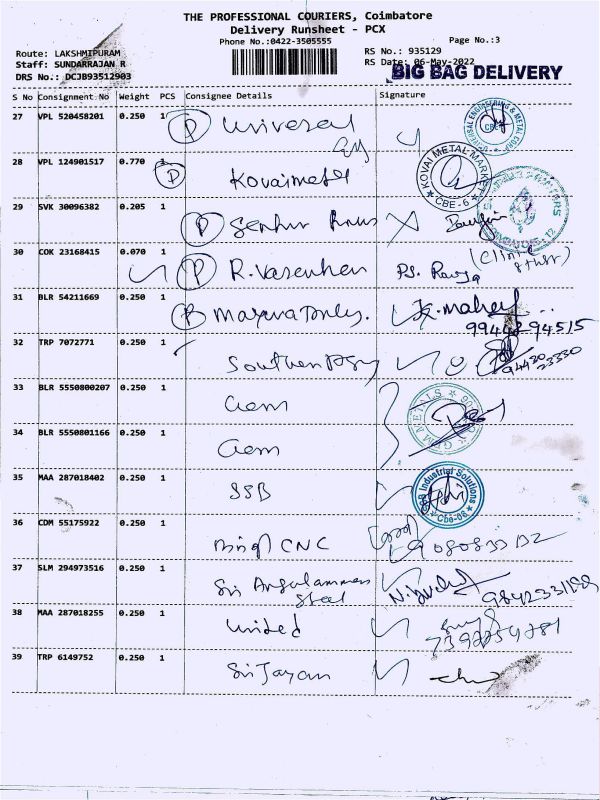 THE PROFESSIONAL COURIERS, Coimbatore
Delivery Runsheet - PCX
Phone No.:0422-3505555
Page No.:3
Route: LAKSHMIPURAM
RS No.: 935129
Staff: SUNDARRAJAN R
RS Date: 06-May-2022
BIG BAG DELIVERY
DRS No.: DCJB93512903
S No Consignment No Weight PCS Consignee Details Signature
27 VPL 520458201 0.250 1 P Universal
28 VPL 124901517 0.770 1 P Kovai metal
KOVAI METAL MARKET
CBE-6
29 SVK 30096382 0.205 1 P
30 COK 23168415 0.070 1 P R.Vasenhan
31 BLR 54211669 0.250 1 P
99442 94515
32 TRP 7072771 0.250 1 Southern
94420 23330
33 BLR 5550800207 0.250 1 Gem
34 BLR 5550801166 0.250 1 Gem
35 MAA 287018402 0.250 1 SSB
SSB Industrial Solutions
Cbe-06
36 CDM 55175922 0.250 1 CNC
37 SLM 294973516 0.250 1 Sri Angalamman
Steel
38 MAA 287018255 0.250 1 United
39 TRP 6149752 0.250 1 Sri Jayan